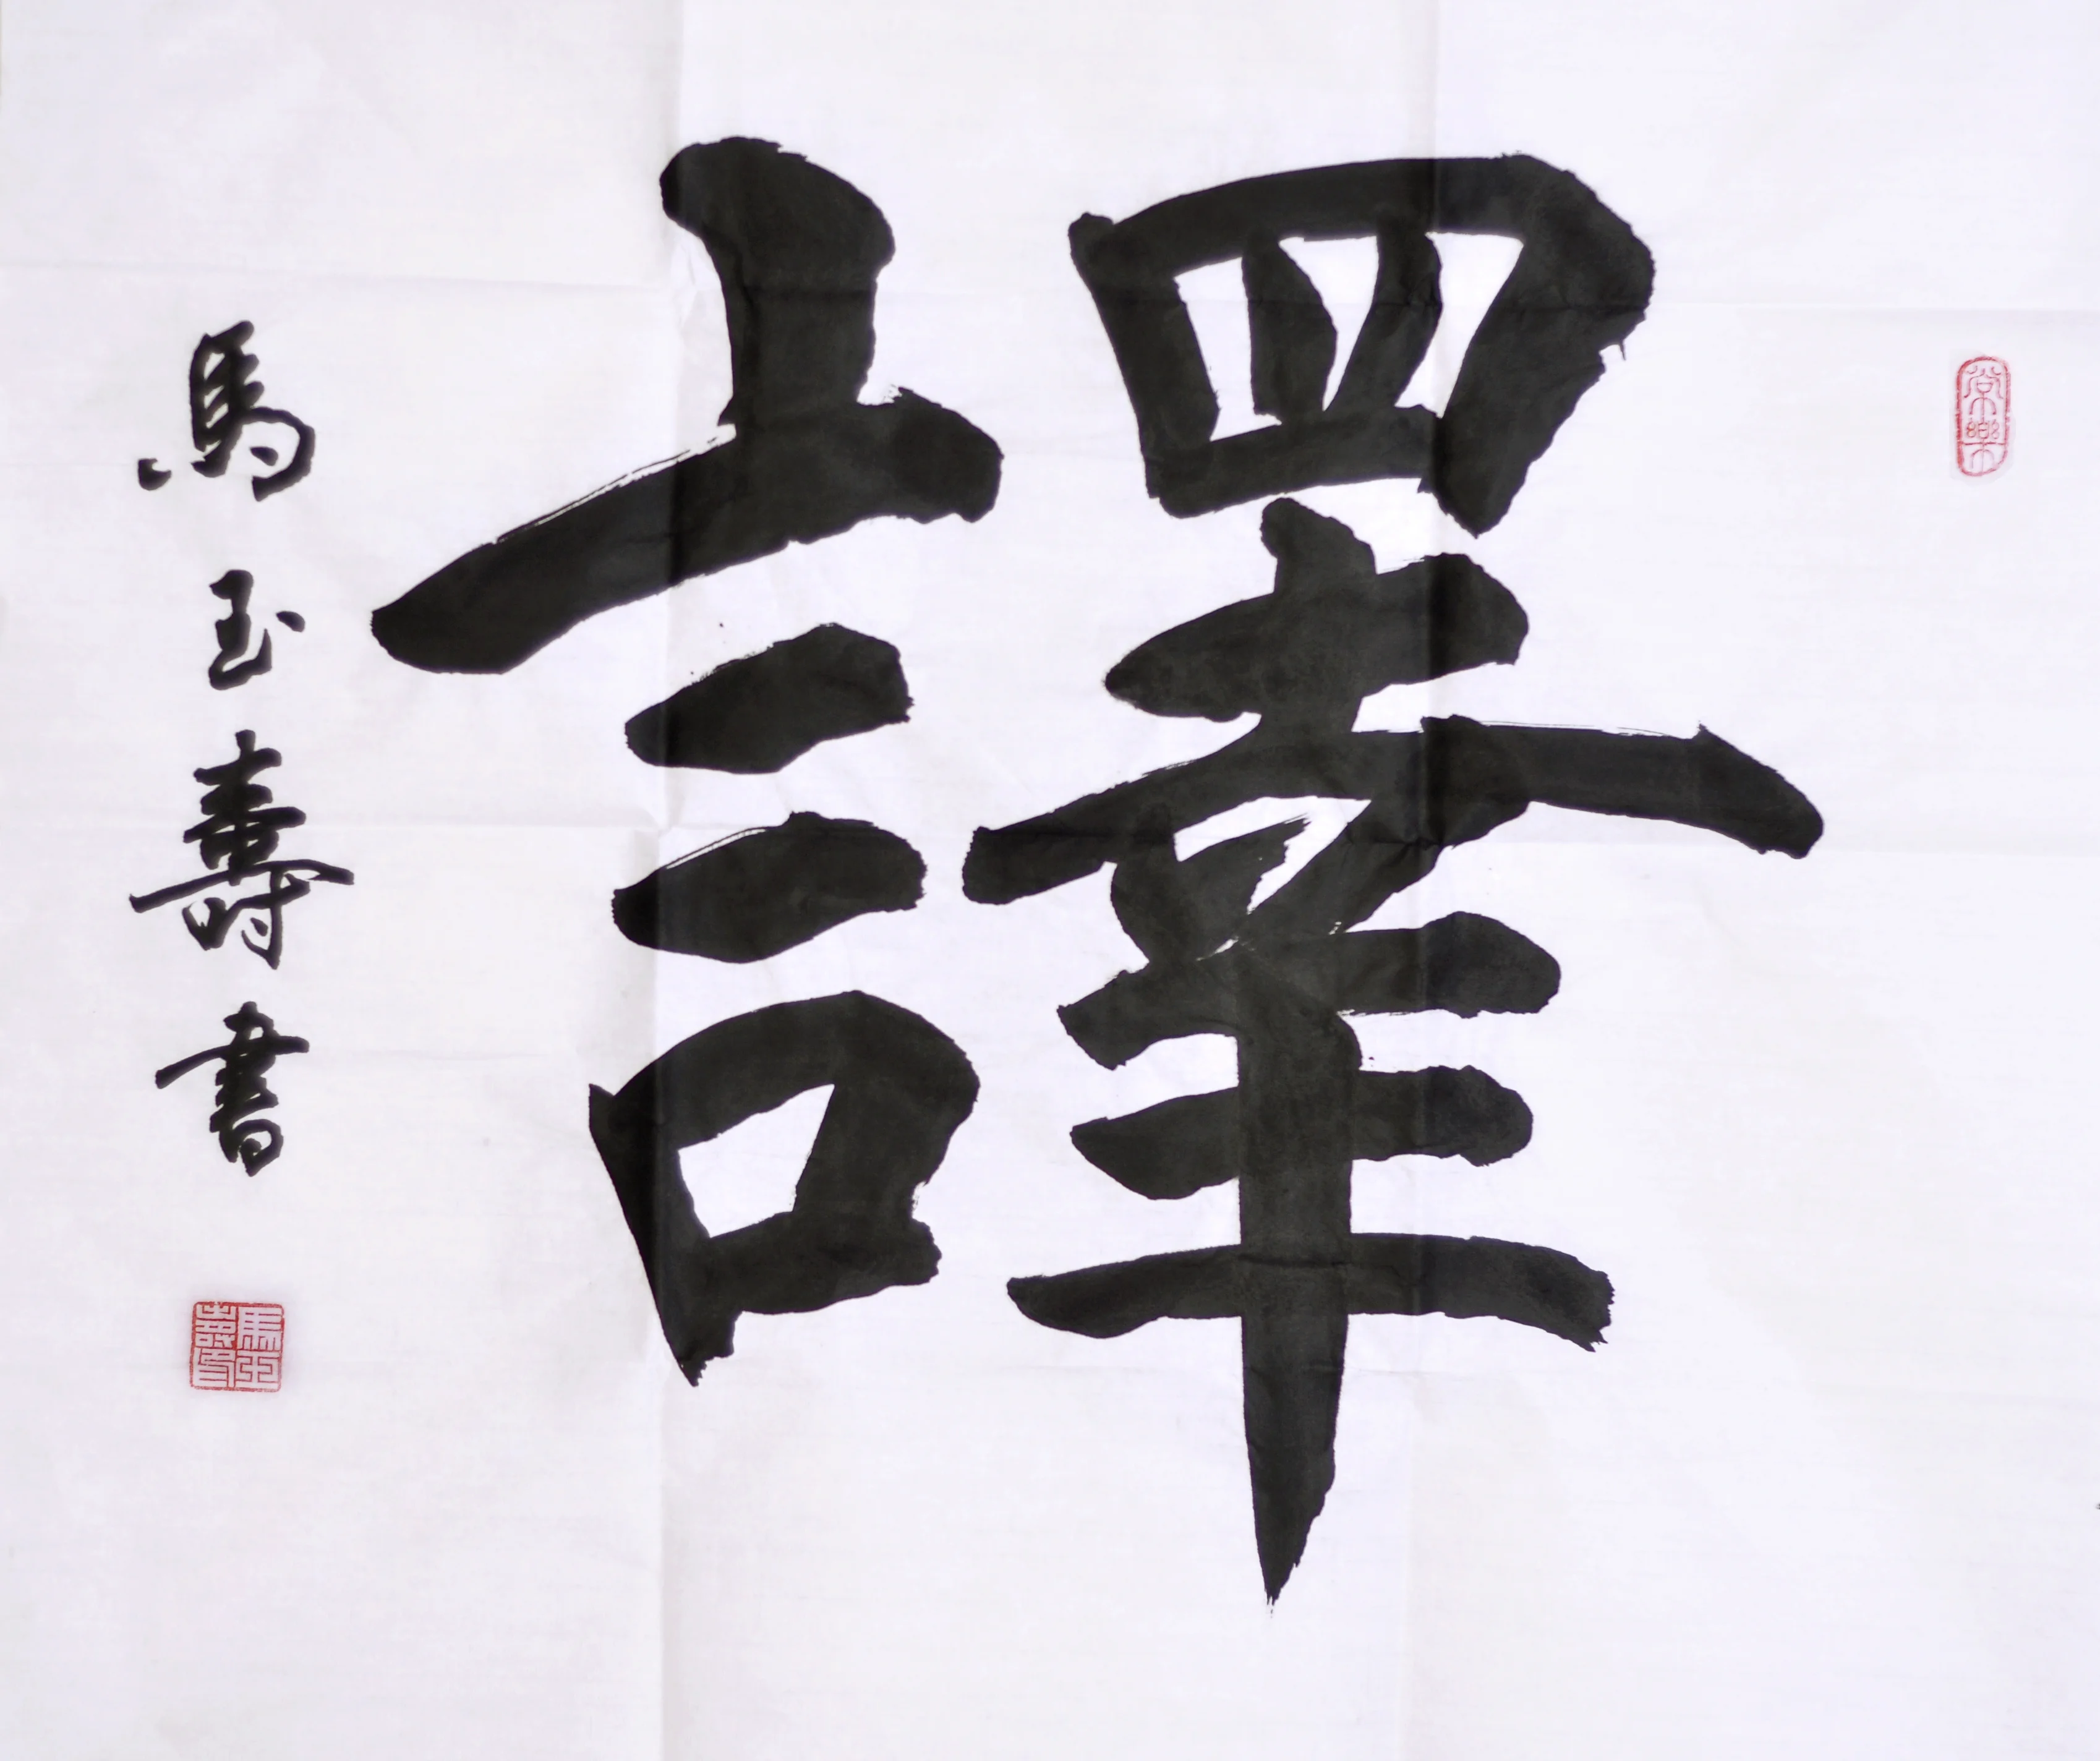 譯
馬玉壽書
常樂
馬玉壽印